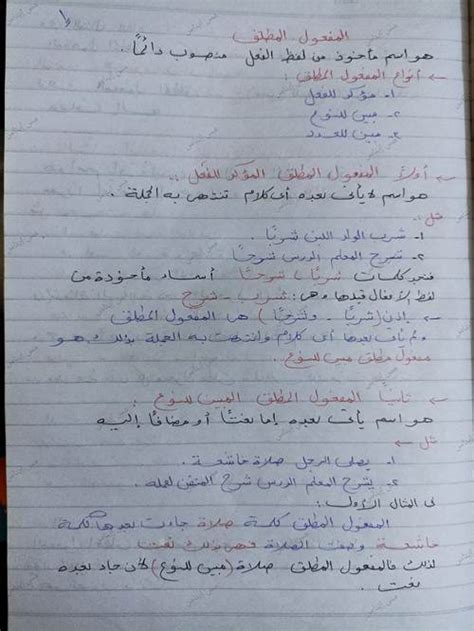 المفعول المطلق
هو اسم مأخوذ من لفظ الفعل منصوب دائمًا .
← أنواع المفعول المطلق :
١- مؤكد للفعل
٢- مبين للنوع
٣- مبين للعدد
← أولاً المفعول المطلق المؤكد للفعل :
هو اسم لا يأتى بعده أى كلام تنتهى به الجملة .
مثل :
١- شرب الولد اللبن شربًا .
٢- شرح المعلم الدرس شرحًا
فنجد كلمات شربًا ، شرحًا أسماء مأخوذة من
لفظ الأفعال قبلها وهى : شرب - شرح
← إذن (شربًا - وشرحًا) هى المفعول المطلق
ولم يأت بعدها أى كلام وانتهت به الجملة بذلك هو
مفعول مطلق مبين للنوع .
← ثانيًا المفعول المطلق المبين للنوع :
هو اسم يأتى بعده إما نعتًا أو مضافًا إليه
مثل ←
١- يصلى الرجل صلاة خاشعة .
٢- يشرح المعلم الدرس شرح المتقن لعمله .
فى المثال الأول :
المفعول المطلق كلمة صلاة جاءت بعدها كلمة
خاشعة وصفت الصلاة فهى بذلك نعت
لذلك فالمفعول المطلق صلاة (مبين للنوع) لأن جاء بعده
نعت .